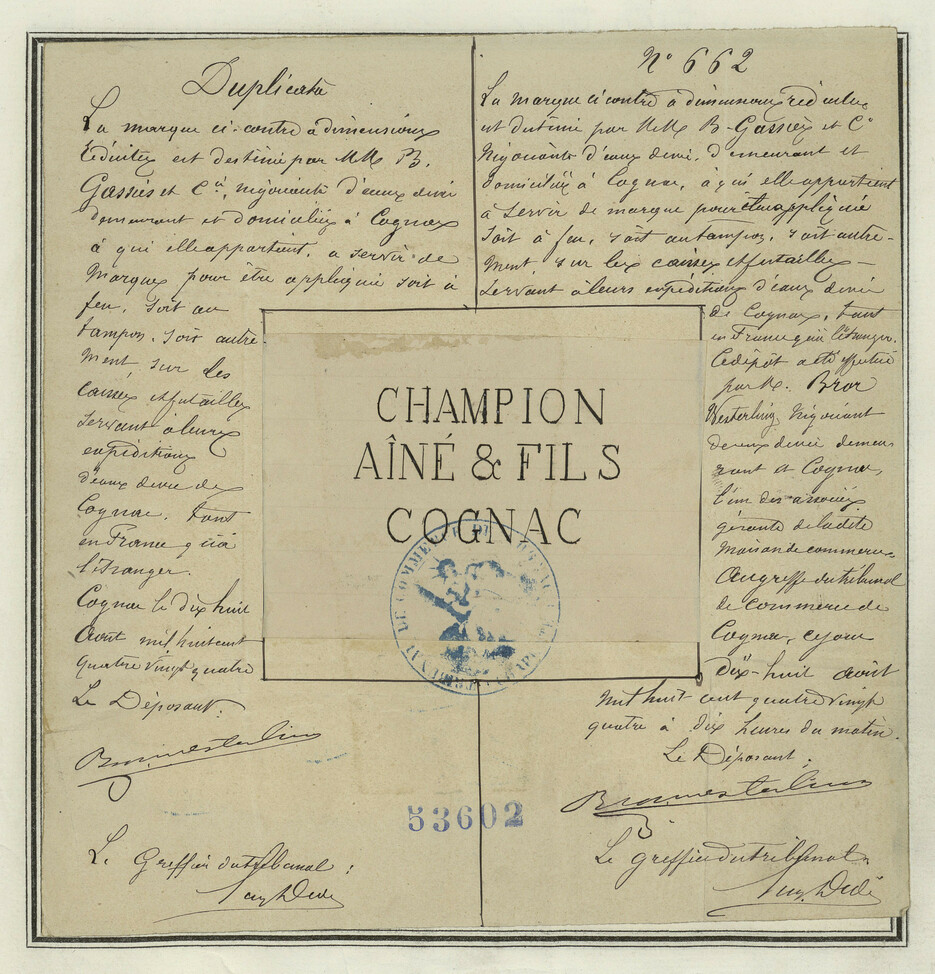 Duplicata
La marque ci-contre à dimensions
réduites est destiné par MM B.
Gassiès et Cie, négociants d'eaux devie
demeurant et domiciliés à Cognac
à qui elle appartient, a servir de
Marque pour être appliquée soit à
feu, soit au
tampon, soit autre-
ment, sur les
caisses et futailles
servant à leurs
expéditions
d'eaux devie de
Cognac, tant
en France qu'à
l'étranger.
Cognac le dix huit
Août mil huit cent
quatre vingt quatre
Le Déposant:
Le Greffier du tribunal:
N° 662
La marque ci contre à dimensions réduites
est destiné par MM B-Gassiès et Cie
Négociants d'eaux devie, demeurant et
domiciliés à Cognac, à qui elle appartient
à servir de marque pour être appliquée
soit à feu, soit au tampon, soit autre-
ment, sur les caisses et futailles
servant à leurs expéditions d'eaux devie
de Cognac, tant
en France qu'à l'étranger.
Ce dépôt a été effectué
par M. Bror
Westerling, Négociant
d'eaux devie demeu
rant à Cognac,
l'un des associés
gérants de la dite
Maison de commerce.
Au greffe du tribunal
de commerce de
Cognac, ce jour
dix-huit août
mil huit cent quatre vingt
quatre à dix heures du matin.
Le Déposant:
Le greffier du tribunal:
CHAMPION
AÎNÉ & FILS
COGNAC
53602